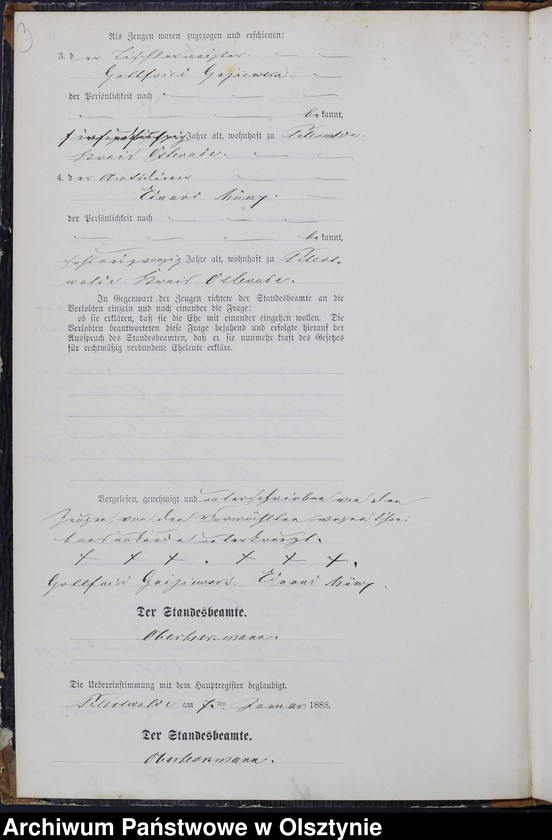 3
Als Zeugen waren zugezogen und erschienen:
3. d er Tischlermeister
Gottfried
der Persönlichkeit nach
bekannt,
Jahre alt, wohnhaft zu
Kreis Osterode.
4. der Amtsdiener
Eduard Münz.
der Persönlichkeit nach
bekannt,
Jahre alt, wohnhaft zu
walde Kreis Osterode.
In Gegenwart der Zeugen richtete der Standesbeamte an die
Verlobten einzeln und nach einander die Frage:
ob sie erklären, daß sie die Ehe mit einander eingehen wollen. Die
Verlobten beantworteten diese Frage bejahend und erfolgte hierauf der
Ausspruch des Standesbeamten, daß er sie nunmehr kraft des Gesetzes
für rechtmäßig verbundene Eheleute erkläre.
Vorgelesen, genehmigt und unterschrieben von den
Zeugen von den Vermählten wegen Schrei
bensunkunde unterkreuzt.
+ + + . + + + .
Gottfried Eduard Münz.
Der Standesbeamte.
Oberbeckmann.
Die Uebereinstimmung mit dem Hauptregister beglaubigt.
am ten Januar 1888.
Der Standesbeamte.
Oberbeckmann.
Archiwum Państwowe w Olsztynie